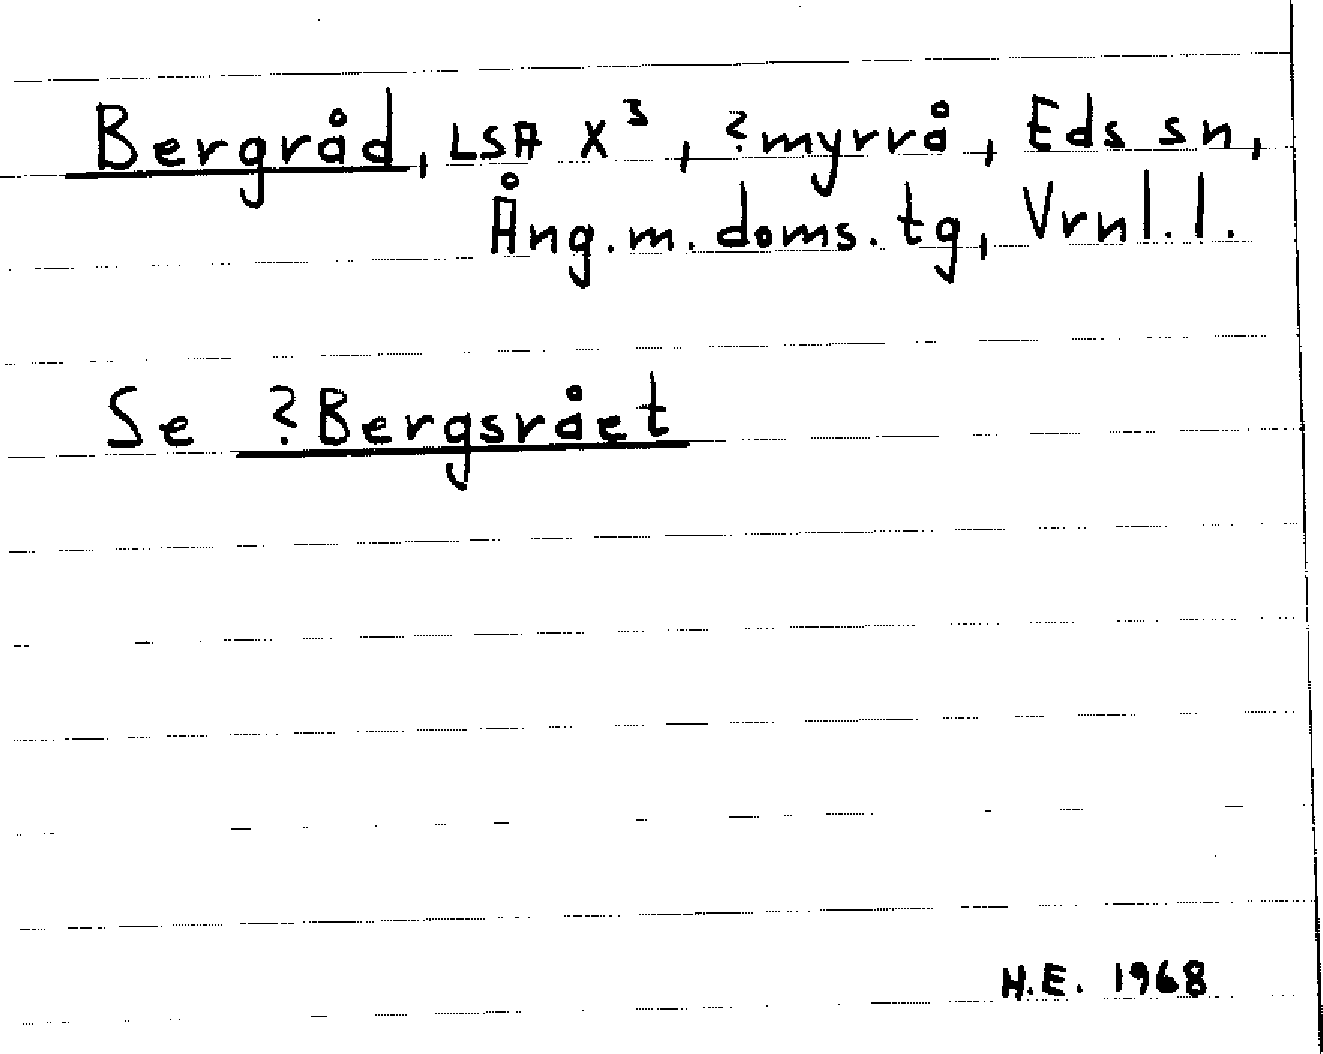 Bergråd, LSA X³, ?myrrå, Eds sn,
Ång. m. doms. tg, Vrnl. l.
Se ?Bergsrået
H.E. 1968